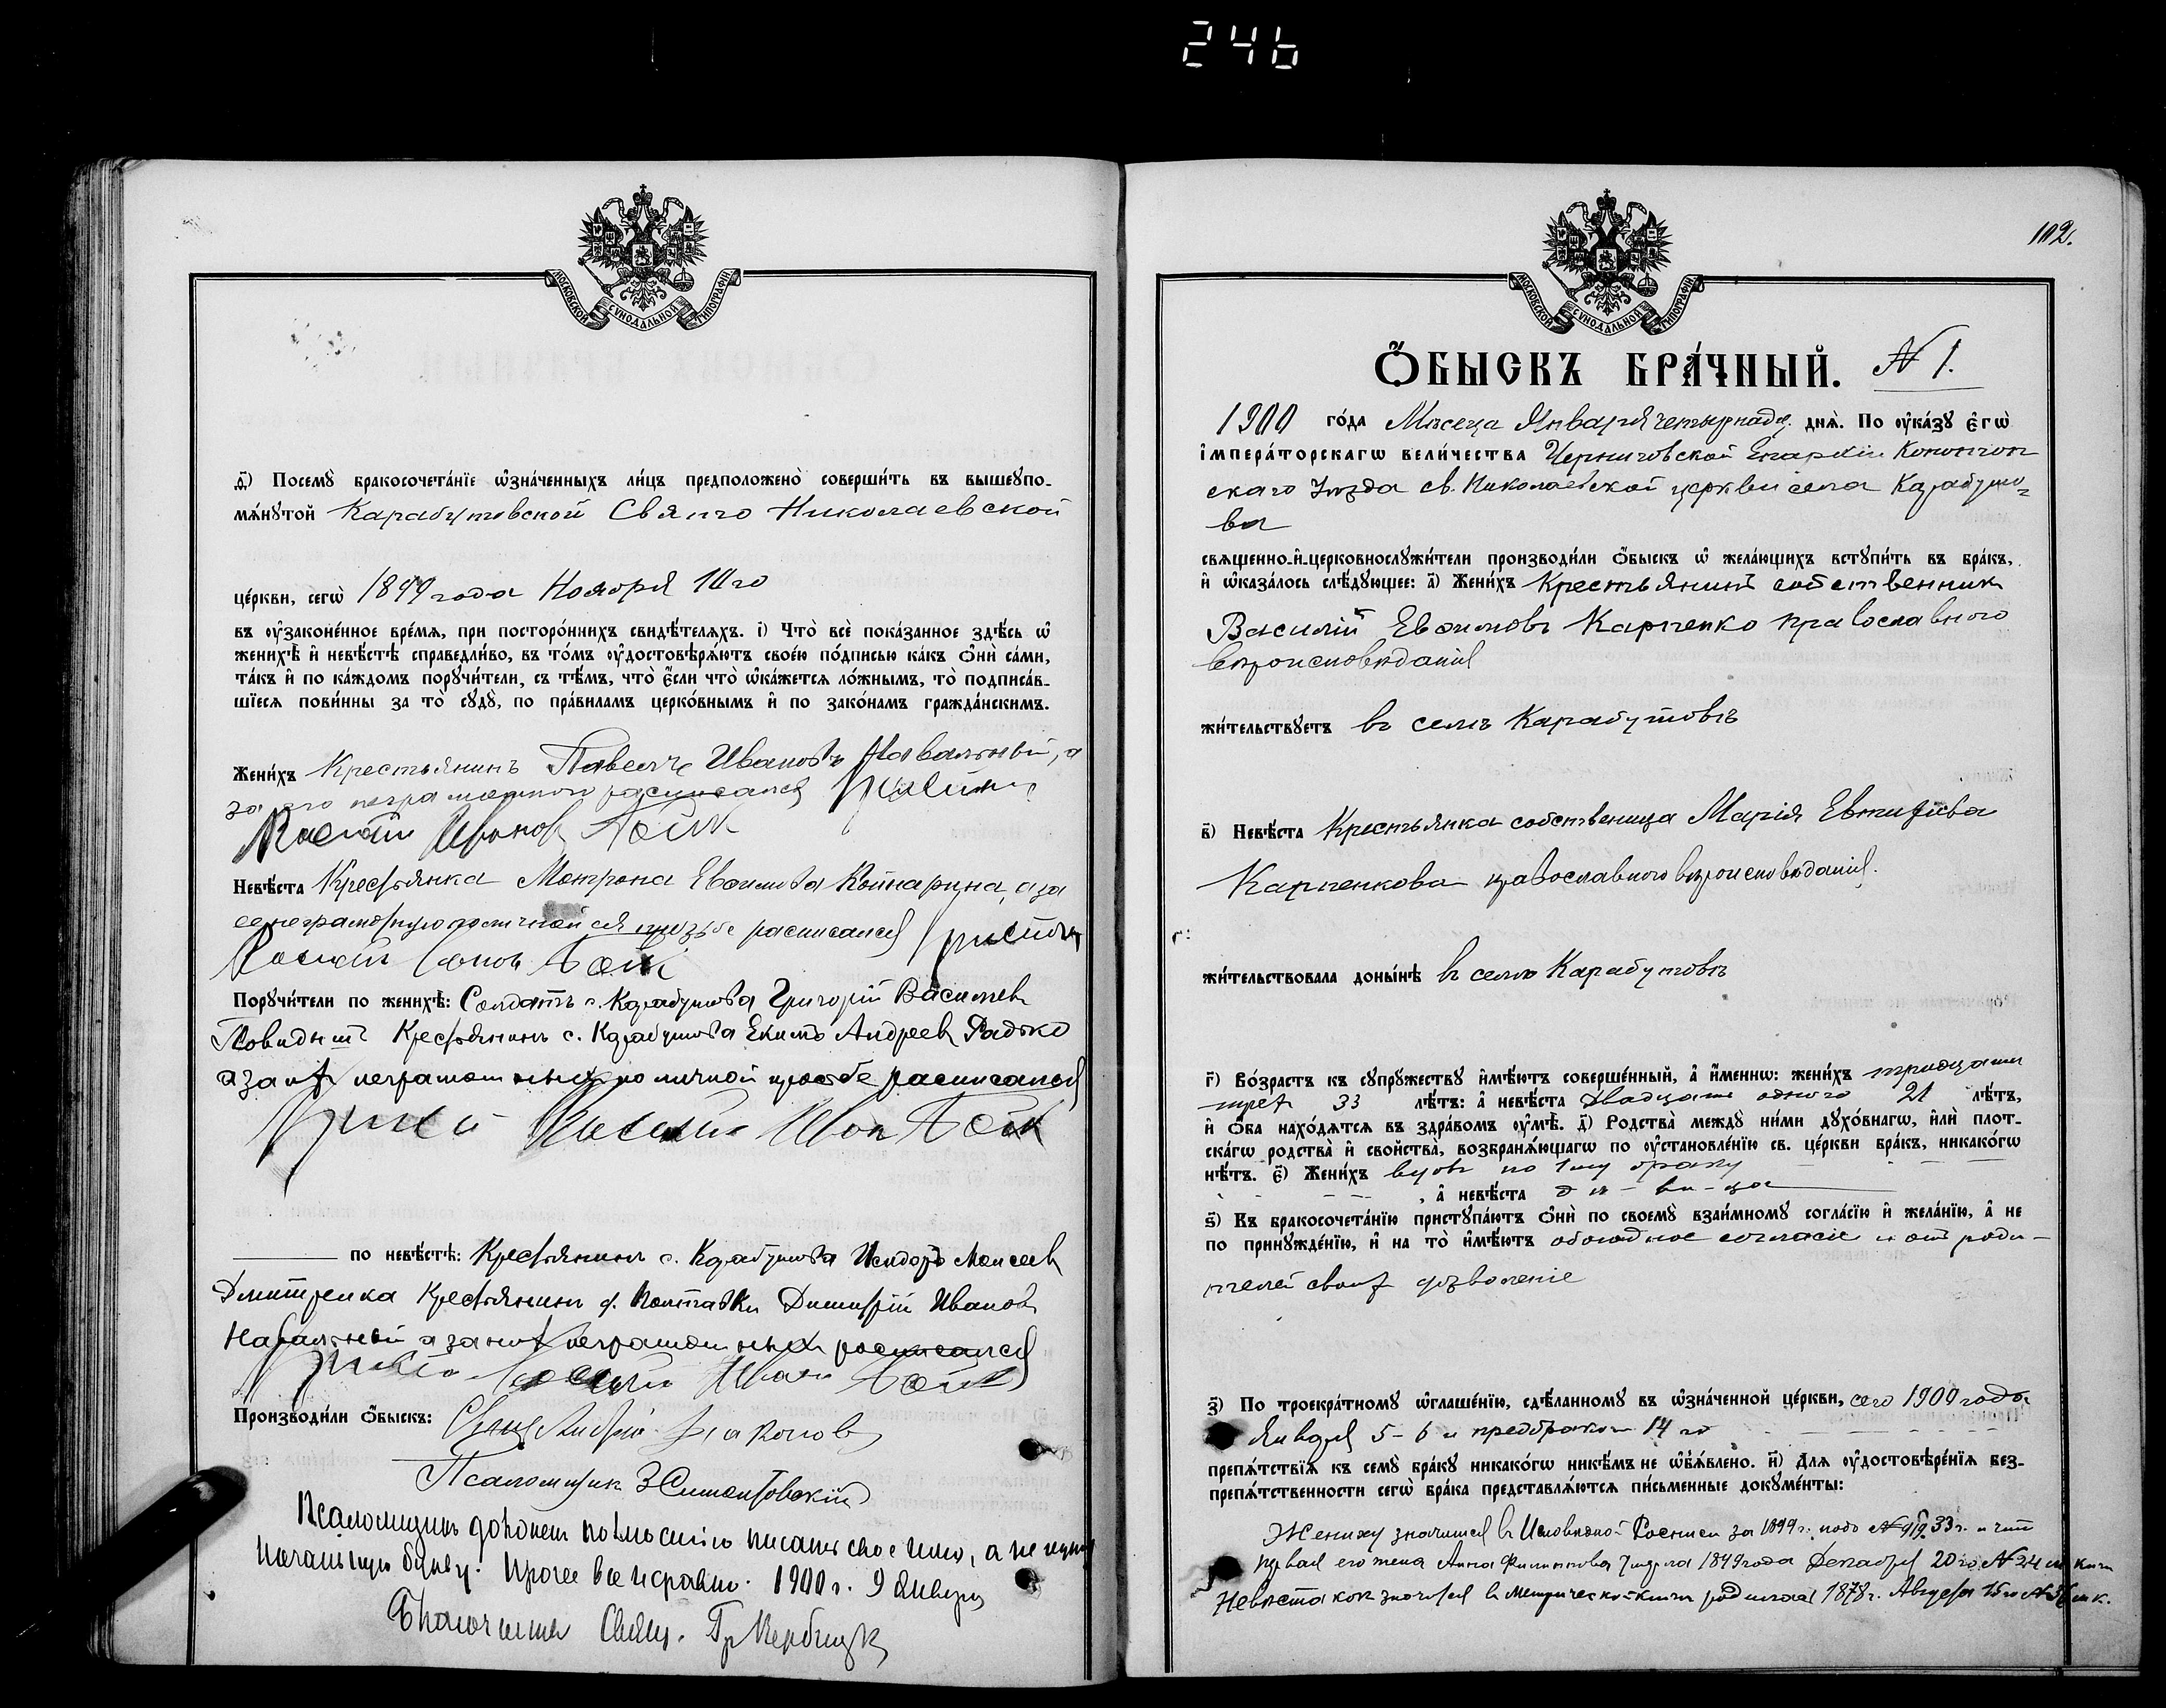 246
МОСКОВСКОЙ СѴНОДАЛЬНОЙ ТИПОГРАФІИ
д҃) Посемꙋ̀ бракосочета́нїе ѡ҆зна́ченныхъ ли́цъ предположено̀ соверши́ть въ вышеꙋпо-
мѧ́нꙋтой Карабутовской Свято Николаевской
це́ркви, сегѡ̀ 1899 года Ноября 10го
въ ᲂу҆зако́не́нное вре́мѧ, при посторо́ннихъ свидѣ́телѧхъ. і҃) Что̀ всѐ пока́занное здѣ́сь ѡ҆
женихѣ̀ и҆ невѣ́стѣ справедли́во, въ то́мъ ᲂу҆достовѣрѧ́ютъ свое́ю по́дписью ка́къ ѻ҆нѝ са́ми,
та́къ и҆ по ка́ждомъ порꙋчи́тели, съ тѣ́мъ, что̀ є҆́сли что̀ ѡ҆ка́жетсѧ ло́жнымъ, то̀ подписа́в-
шїесѧ пови́нны за то̀ сꙋдꙋ̀, по пра́виламъ церко́внымъ и҆ по зако́намъ гражда́нскимъ.
Жени́хъ Крестьянинъ Павелъ Ивановъ Навальный, а
за его неграмотного расписался
Василий Иванов
Невѣ́ста Крестьянка Матрона Евѳимова а за
ее неграмотную по личной ея просьбе расписался
Порꙋчи́тели по женихѣ̀: Солдатъ с. Карабутова Григорій Васильев
Крестьянинъ с. Карабутова Екимъ Андреев Радько
а за них неграмотных по личной просьбе расписался
Василий Иван
по невѣ́стѣ: Крестьянинъ с. Карабутова Исидоръ Моисеев
Дмитренка Крестьянинъ д. Полтавки Димитрій Иванов
Навальный а за них неграмотных расписался
Производи́ли ѻ҆́быскъ: Свящ.
Псаломщик З Симентовскій
Псаломщикъ долженъ полностію писать свое имя, а не одну
начальную букву. Прочее все исправно. 1900 г. 9 Января
Благочинный Свящ. Гр. Вербицк
102.
МОСКОВСКОЙ СѴНОДАЛЬНОЙ ТИПОГРАФІИ
Ѻ҆БЫСКЪ БРА́ЧНЫЙ. № 1.
1900 го́да Мѣсяца Января четырнадц. днѧ̀. По ᲂу҆ка́зꙋ є҆гѡ̀
і҆мпера́торскагѡ вели́чества Черниговской Епархіи Конотоп
скаго Уѣзда св. Николаевской церкви села Карабуто-
ва
свѧщенно-и҆-церковнослꙋжи́тели производи́ли ѻ҆́быскъ ѡ҆ жела́ющихъ встꙋпи́ть въ бра́къ,
и҆ ѡ҆каза́лось слѣ́дꙋющее: а҃) Жени́хъ Крестьянинъ собственник
Василій Евѳимовъ Карпенко православного
вѣроисповѣданія
жи́тельствꙋетъ въ селѣ Карабутовѣ
в҃) Невѣ́ста Крестьянка собственица Марія Евтихіева
Карпенкова православного вѣроисповѣданія.
жи́тельствовала доны́нѣ в селѣ Карабутовѣ
г҃) Во́зрастъ къ сꙋпрꙋжествꙋ и҆мѣ́ютъ соверше́нный, а҆ и҆́меннѡ: жени́хъ тридцати
трех 33 лѣ́тъ: а҆ невѣ́ста двадцати одного 21 лѣ́тъ,
и҆ ѻ҆́ба нахо́дѧтсѧ въ здра́вомъ ᲂу҆мѣ̀. д҃) Родства̀ междꙋ ни́ми дꙋхо́внагѡ, и҆лѝ пло́т-
скагѡ родства̀ и҆ сво́йства̀, возбранѧ́ющагѡ по ᲂу҆становле́нїю св. це́ркви бра́къ, никако́гѡ
нѣ́тъ. є҃) Жени́хъ вдов по 1му браку
, а҆ невѣ́ста дѣ - ви - ца
ѕ҃) Къ бракосочета́нїю пристꙋпа́ютъ ѻ҆нѝ по своемꙋ̀ взаи́мномꙋ согла́сїю и҆ жела́нїю, а҆ не
по принꙋжде́нїю, и҆ на то̀ и҆мѣ́ютъ обоюдное согласіе и от роди-
телей своих дозволеніе
з҃) По троекра́тномꙋ ѡ҆глаше́нїю, сдѣ́ланномꙋ въ ѡ҆зна́ченной це́ркви, сего 1900 года
Января 5 - 6 и предбрако 14 го
препѧ́тствїѧ къ семꙋ̀ бра́кꙋ никако́гѡ никѣ́мъ не ѡ҆б̾ѧ́влено. и҃) Длѧ ᲂу҆достовѣре́нїѧ без-
препѧ́тственности сегѡ̀ бра́ка представлѧ́ютсѧ пи́сьменные докꙋме́нты:
Жениху значится в Исповѣдной Росписи за 1899 г. подъ № 33 г. и что
первая его жена Анна Филиппова умерла 1899 года Декабря 20 го № 24 м. книг
Невѣста как значится в метрической книги родилась 1878 г. Августа 15 го № 36 м. к.